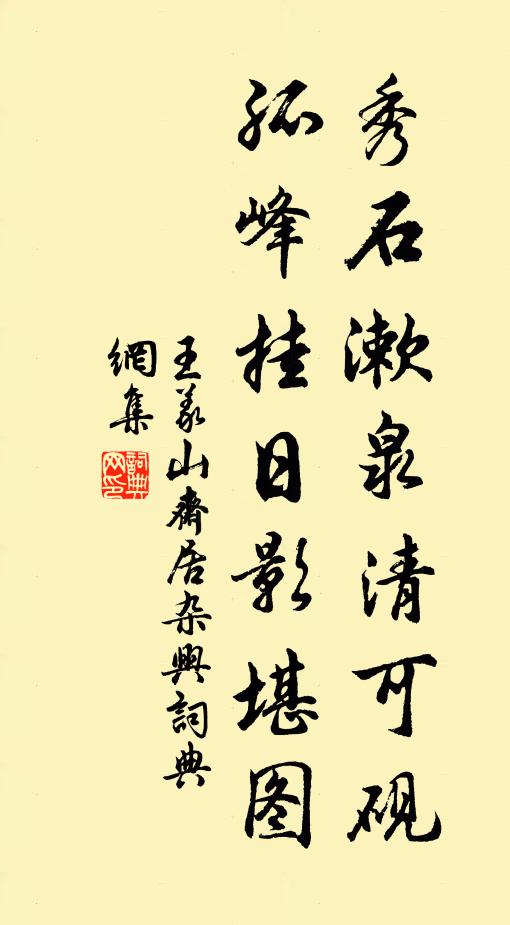 秀石漱泉清可砚
孤峰挂日影堪图
王义山齋居杂興詞典
網集
詞典网印